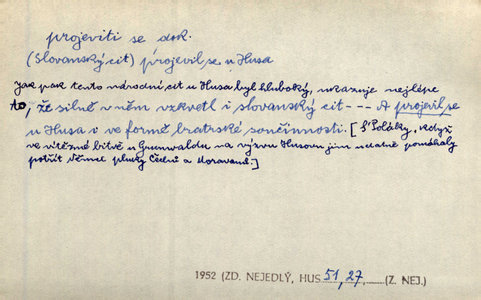 projeviti se dok.
(Slovanský cit) projevil se u Husa
Jak pak tento národní cit u Husa byl hluboký, ukazuje nejlépe
to, že silně v něm vzkvetl i slovanský cit --- A projevil se
u Husa i ve formě bratrské součinnosti. [S Poláky, když
ve vítězné bitvě u Grunwaldu na výzvu Husovu jim udatně pomáhaly
potřít Němce pluky Čechů a Moravanů.]
1952 (ZD. NEJEDLÝ, HUS 51, 27. (Z. NEJ.)